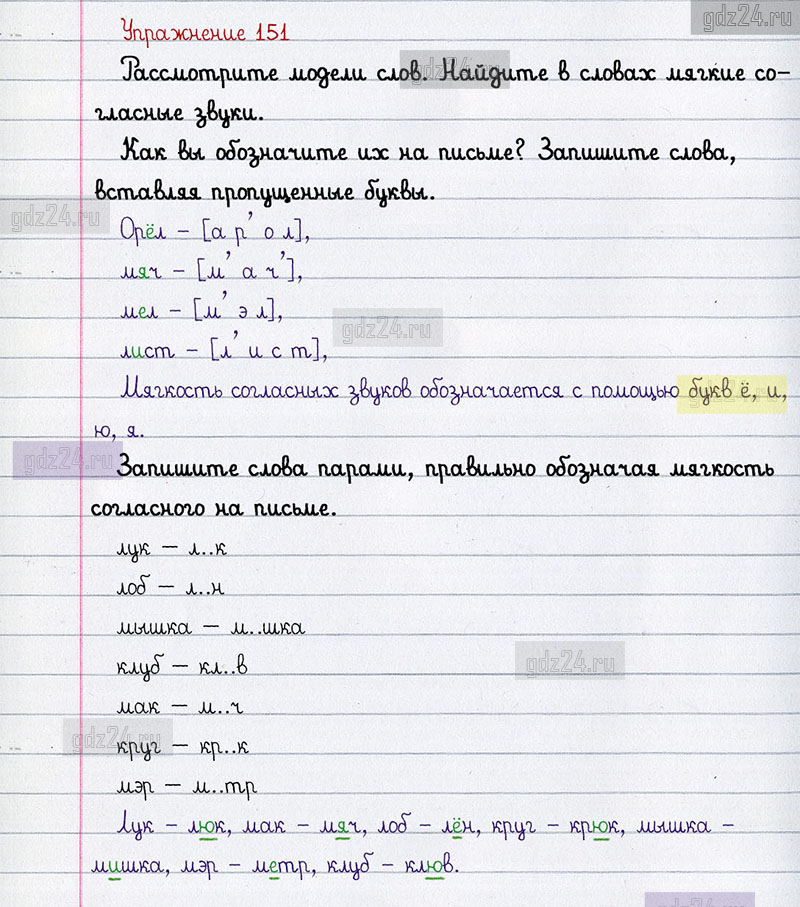 gdz24.ru
Упражнение 151
Рассмотрите модели слов. Найдите в словах мягкие со-
gdz24.ru
гласные звуки.
Как вы обозначите их на письме? Запишите слова,
вставляя пропущенные буквы.
gdz24.ru
Орёл – [а р' о л],
мяч – [м' а ч'],
мел – [м' э л],
gdz24.ru
лист – [л' и с т],
Мягкость согласных звуков обозначается с помощью букв ё, и,
gdz24.ru
ю, я.
gdz24.ru
Запишите слова парами, правильно обозначая мягкость
согласного на письме.
лук – л..к
лоб – л..н
мышка – м..шка
клуб – кл..в
gdz24.ru
мак – м..ч
gdz24.ru
круг – кр..к
мэр – м..тр
Лук – люк, мак – мяч, лоб – лён, круг – крюк, мышка –
мишка, мэр – метр, клуб – клюв.
gdz24.ru